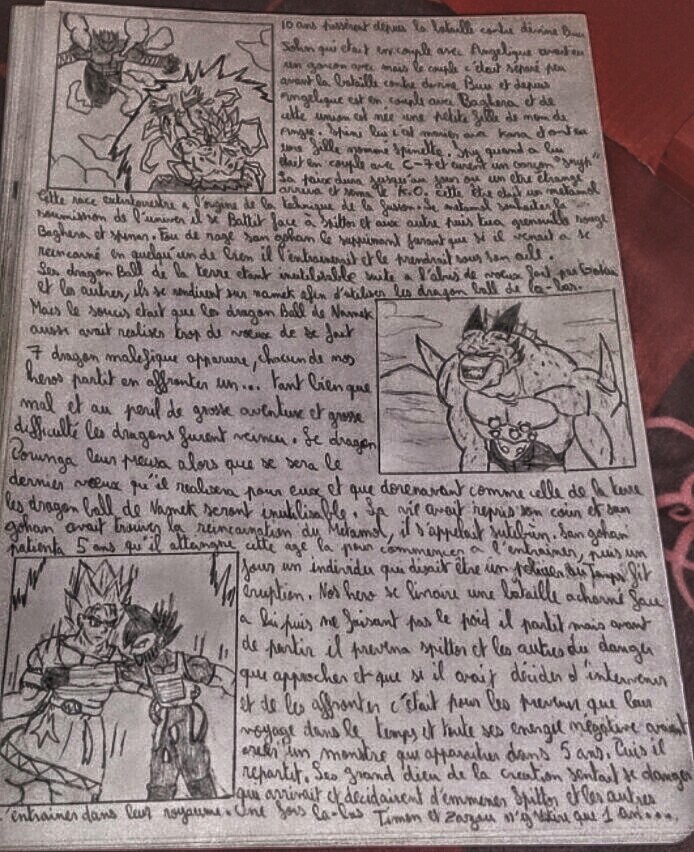 10 ans passèrent depuis la bataille contre divine Buu
John qui était en couple avec Angelique avait eu
un garçon avec mais le couple c'était séparé peu
avant la bataille contre divine Buu et depuis
Angelique est en couple avec Baghera et de
cette union est née une petite fille du nom de
Angie. Spine lui c'est marier aux Kana d'ont eu
une fille nommé Spinette. Spy quand a lui
était en couple avec C-7 et eurent un garçon "Spyh"
La paix dura jusqu'au jour ou un être étrange
arriva et sema le K.O. Cette être était un metamol
Cette race extraterrestre a l'origine de la technique de la fusion. Le metamol souhaiter la
soumission de l'univer il se Battit face à Spittos et aux autre puis tua grenouille rouge
Baghera et spinos. Fou de rage san gohan le supprimant jurant que si il venait a se
reincarné en quelqu'un de bien il l'entrainerait et le prendrait sous son aile.
Les dragon Ball de la terre etant inutilisable suite a l'abus de voeux fait par Goku
et les autres, ils se rendirent sur namek afin d'utiliser les dragon ball de la-bas.
Mais le soucis etait que les dragon Ball de Namek
ausse avait realiser trop de voeux de se fait
7 dragon malefique apparure, chacun de nos
heros partit en affronter un... tant bien que
mal et au peril de grosse aventure et grosse
difficulté les dragons furent veincu. Le dragon
Porunga leur precisa alors que se sera le
dernier voeux qu'il realisera pour eux et que dorenavant comme celle de la terre
les dragon ball de Namek seront inutilisable. La vie avait repris son cour et san
gohan avait trouver la reincarnation du Metamol, il s'appelait sutebin. San gohan
patienta 5 ans qu'il atteingne cette age la pour commencer a l'entrainer, puis un
jour un individu qui disait être un policier du Temps fit
eruption. Nos hero se livraire une bataille acharné face
a lui puis ne faisant pas le poid il partit mais avant
de partir il prevena spittos et les autres du danger
qui approcher et que si il avait décider d'intervenir
et de les affronter c'était pour les prevenir que leur
voyage dans le temps et toute ses energie négative avaient
créer un monstre qui apparaitrer dans 5 ans. Puis il
repartit. Les grand dieu de la creation sentait le danger
qui arrivait et decidairent d'emmener Spittos et les autres
s'entrainer dans leur royaume. Une fois la-bas Timon et Zazou n'y restire que 1 an....